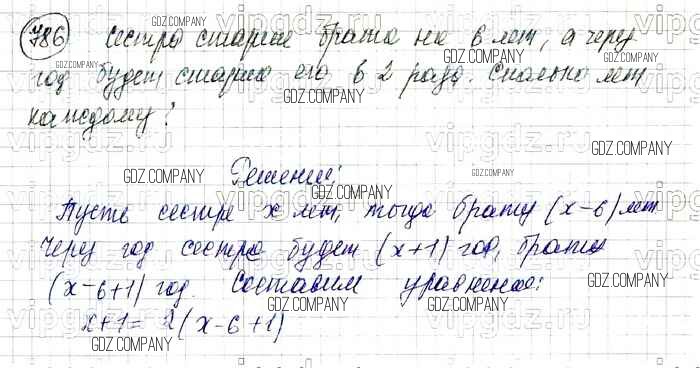 786 Сестра старше брата на 6 лет, а через
год будет старше его в 2 раза. Сколько лет
каждому?
Решение:
Пусть сестре x лет, тогда брату (x-6) лет
Через год сестре будет (x+1) год, брату
(x-6+1) год. Составим уравнение:
x+1=2(x-6+1)